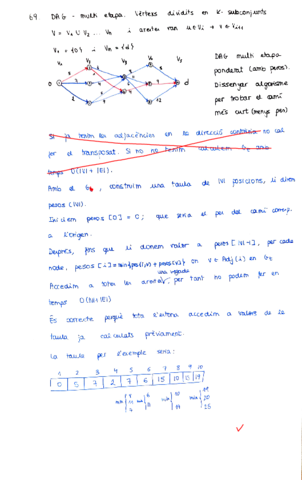 69. DAG - multi etapa. Vèrtexs dividits en K subconjunts
V = V₁ ∪ V₂ ... Vₖ i arestes van u∈Vᵢ → v∈Vᵢ₊₁
V₁ = {o} i Vₖ = {d}
V₁ V₂ V₃ V₄ V₅
o d
DAG multi etapa
ponderat (amb pesos).
Dissenyar algorisme
per trobar el camí
més curt (menys pes)
Si ja tenim les adjacències en la direcció contrària no cal
fer el transposat. Si no ho tenim calculem Gₜ amb
temps O(|V| + |E|).
Amb el Gₜ, construïm una taula de |V| posicions, li diem
pesos [V].
Iniciem pesos [0] = 0; que seria el pes del camí
a l'origen.
Després, fins que li donem valor a pesos [|V|-1], per cada
node, pesos [i] = min{pes(i,v) + pesos[v]} on v ∈ Adj(i) en Gₜ
Accedim a totes les arestes una vegada, per tant ho podem fer en
temps O(|V|+|E|)
És correcte perquè tota s'estona accedim a valors de la
taula ja calculats prèviament.
La taula per l'exemple seria:
1 2 3 4 5 6 7 8 9 10
0 5 7 2 7 6 15 10 19
min min min min
20
25